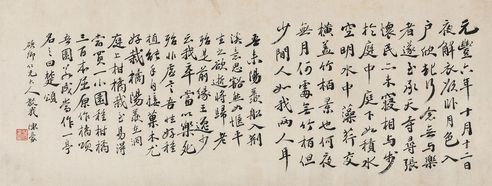 元豐六年十月十二日
夜解衣欲睡月色入
户欣然起行念無與樂
者遂至承天寺尋張
懷民亦未寢相與步
於庭中庭下如積水
空明水中藻荇交
橫蓋竹柏景也何夜
無月何處無竹柏但
少閒人如我兩人耳
吾來陽羨船入荆
溪意思豁然如愜平
生之欲逝將歸老
殆是前緣王逸少
云我卒當以樂死
殆非虛言吾性好種
植能手自接菓木尤
好栽橘陽羨在洞
庭上柑橘栽至易得
當買一小園種柑橘
三百本屈原作橘頌
吾園若成當作一亭
名之曰楚頌
仁兄大人教我 陳豪